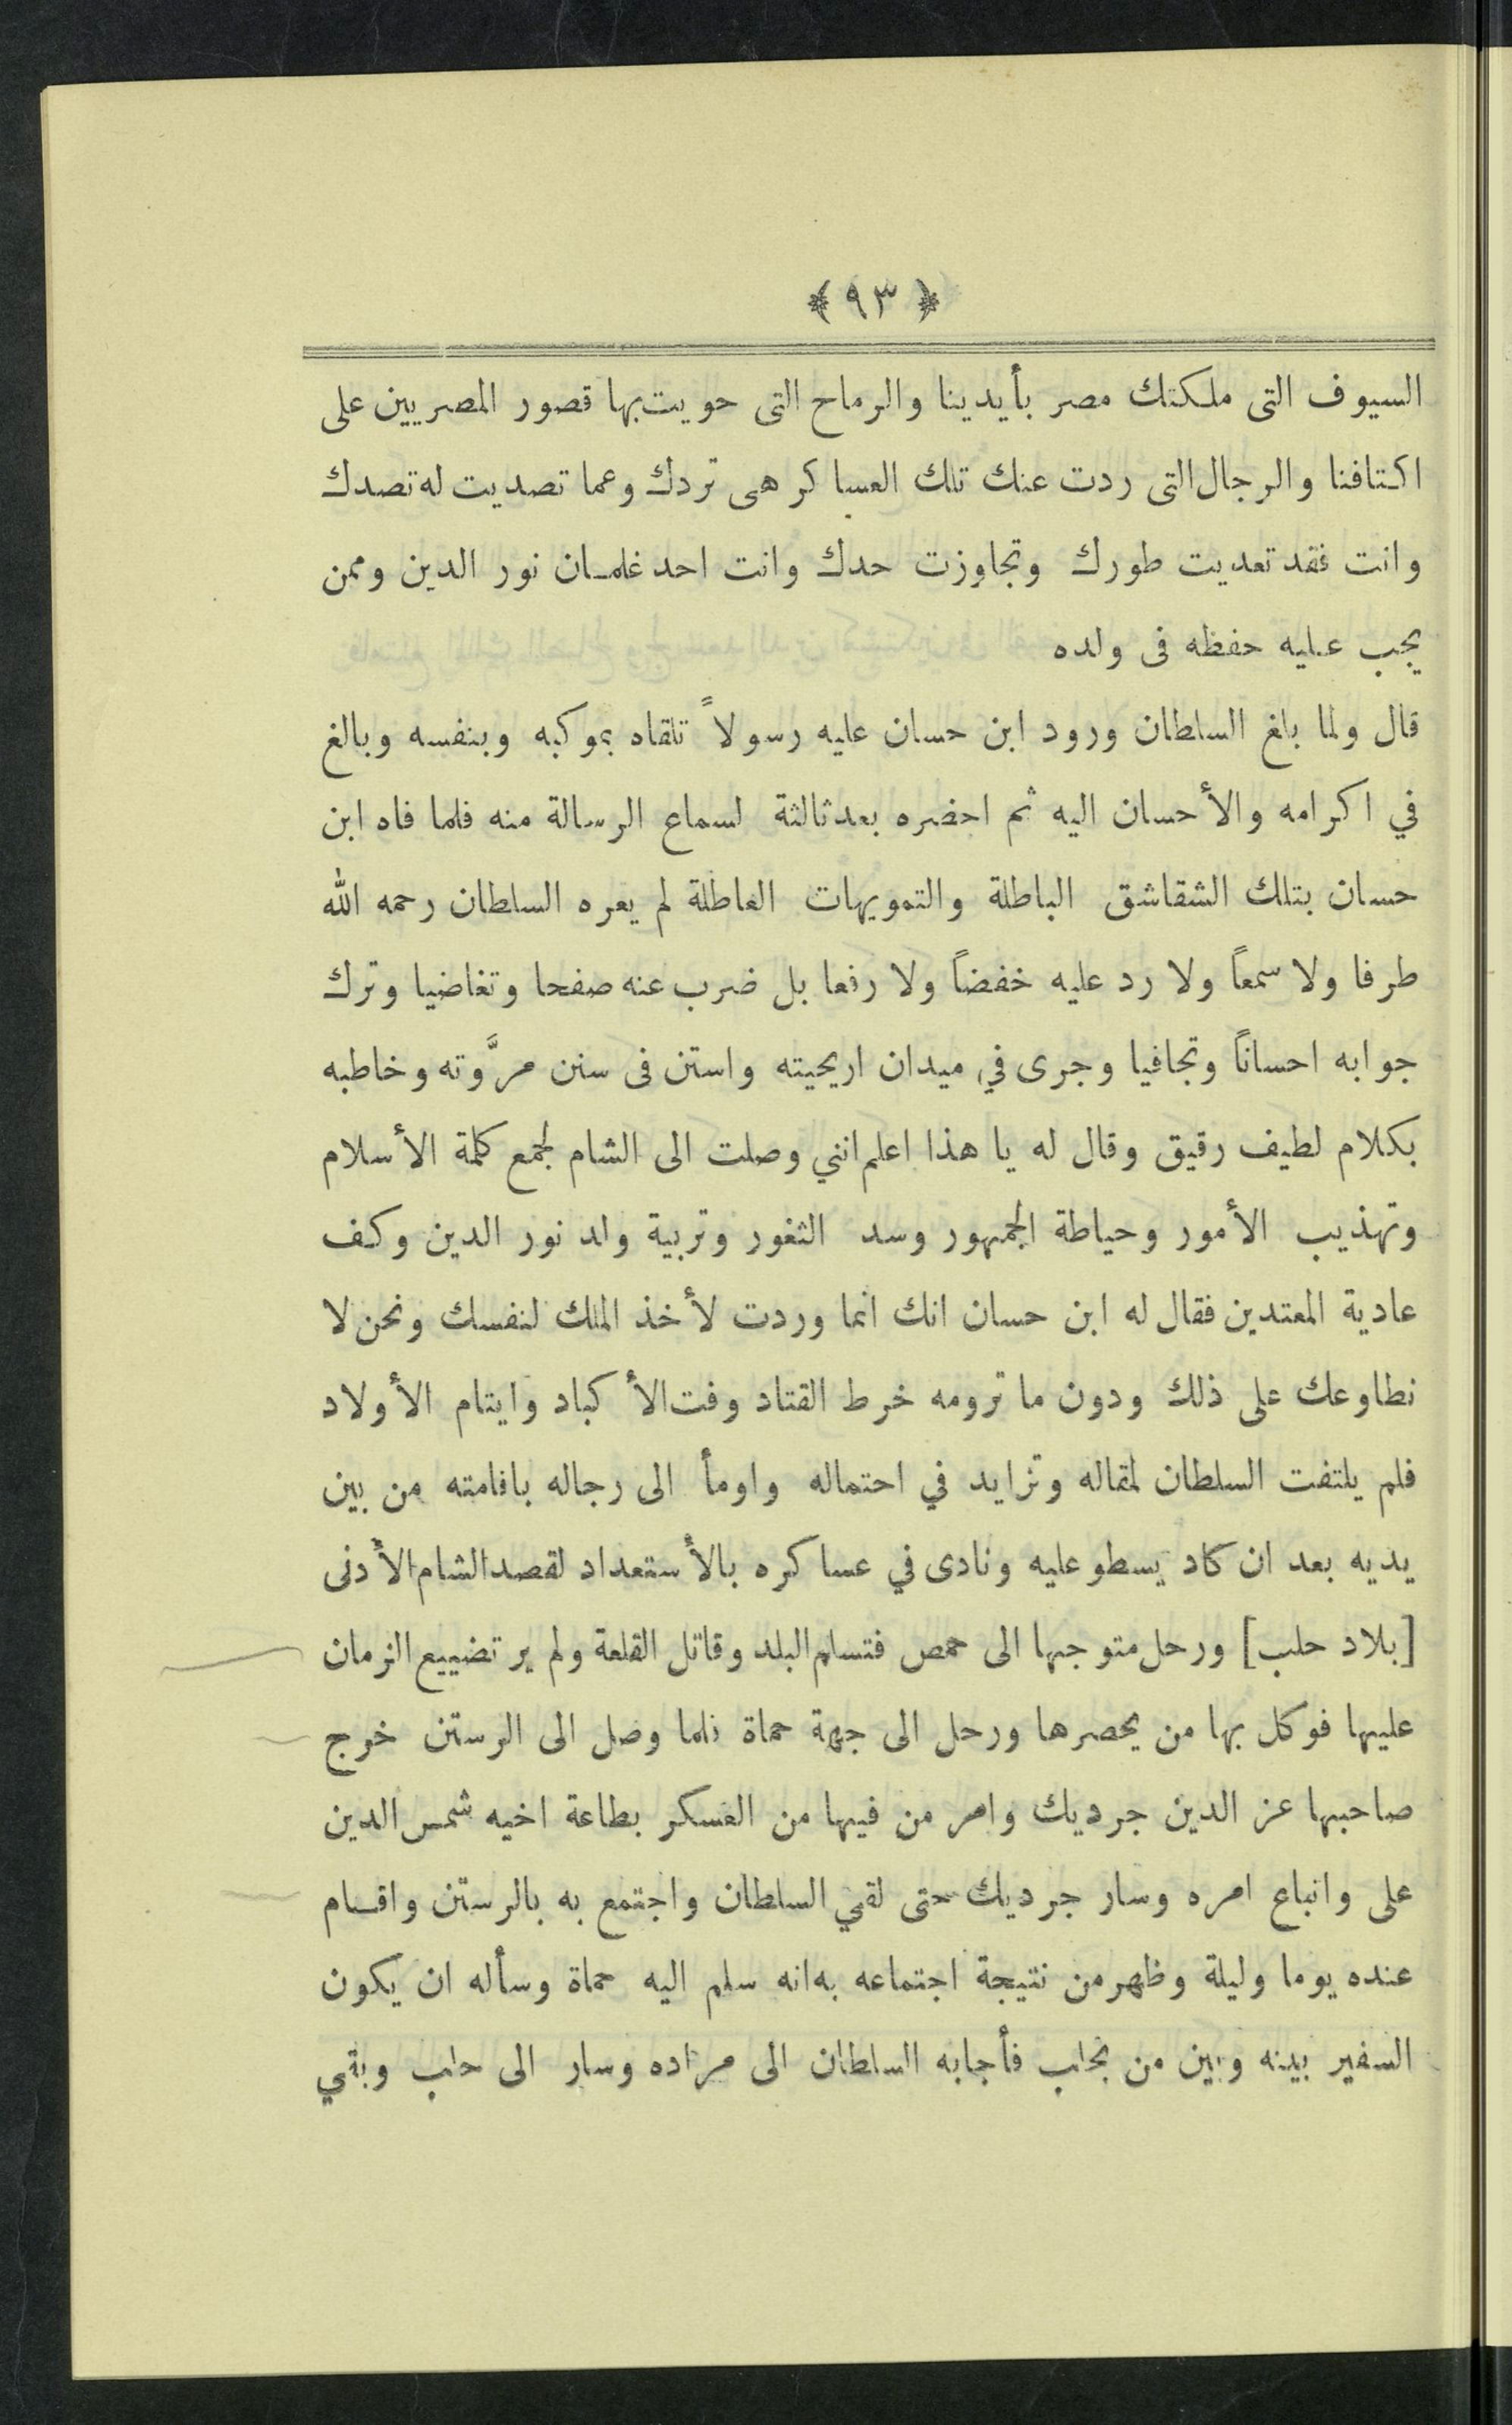 ﴿ ٩٣ ﴾
السيوف التى ملكتك مصر بأيدينا والرماح التى حويت بها قصور المصريين على
اكتافنا والرجال التى ردت عنك تلك العساكر هى تردك وعما تصديت له تصدك
وانت فقد تعديت طورك وتجاوزت حدك وانت احد غلمان نور الدين وممن
يجب عليه حفظه فى ولده
قال ولما بلغ السلطان ورود ابن حسان عليه رسولاً تلقاه بموكبه وبنفسه وبالغ
في اكرامه والأحسان اليه ثم احضره بعد ثالثة لسماع الرسالة منه فلما فاه ابن
حسان بتلك الشقاشق الباطلة والتمويهات العاطلة لم يعره السلطان رحمه الله
طرفا ولا سمعاً ولا رد عليه خفضاً ولا رفعا بل ضرب عنه صفحا وتغاضيا وترك
جوابه احساناً وتجافيا وجرى في ميدان اريحيته واستن فى سنن مروَّته وخاطبه
بكلام لطيف رقيق وقال له يا هذا اعلم انني وصلت الى الشام لجمع كلمة الأسلام
وتهذيب الأمور وحياطة الجمهور وسد الثغور وتربية ولد نور الدين وكف
عادية المعتدين فقال له ابن حسان انك انما وردت لأخذ الملك لنفسك ونحن لا
نطاوعك على ذلك ودون ما ترومه خرط القتاد وفت الأكباد وايتام الأولاد
فلم يلتفت السلطان لمقاله وتزايد في احتماله واومأ الى رجاله باقامته من بين
يديه بعد ان كاد يسطو عليه ونادى في عساكره بالأستعداد لقصد الشام الأدنى
[بلاد حلب] ورحل متوجها الى حمص فتسلم البلد وقاتل القلعة ولم ير تضييع الزمان
عليها فوكل بها من يحصرها ورحل الى جهة حماة فلما وصل الى الرستن خرج
صاحبها عز الدين جرديك وامر من فيها من العسكر بطاعة اخيه شمس الدين
على واتباع امره وسار جرديك حتى لقي السلطان واجتمع به بالرستن واقام
عنده يوما وليلة وظهر من نتيجة اجتماعه به انه سلم اليه حماة وسأله ان يكون
السفير بينه وبين من بحلب فأجابه السلطان الى مراده وسار الى حلب وبقي